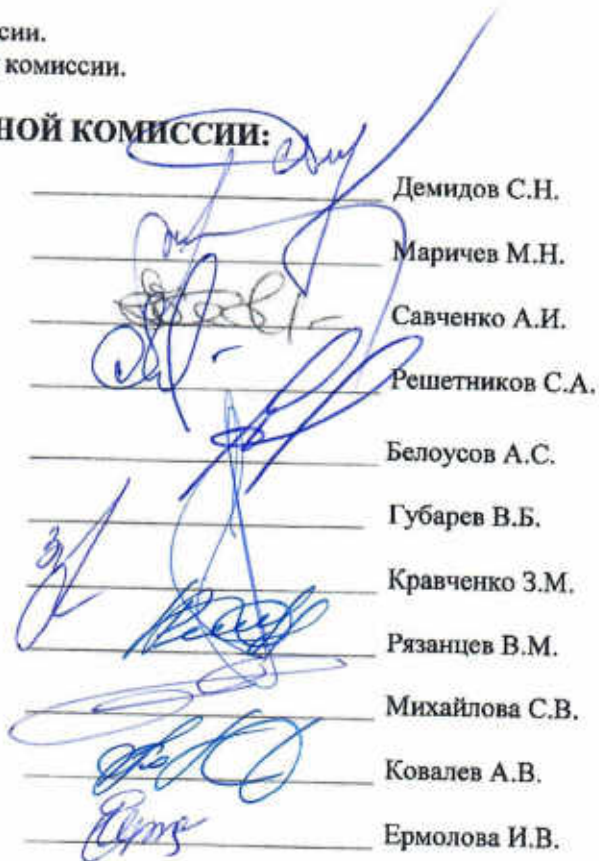 сии.
комиссии.
НОЙ КОМИССИИ:
Демидов С.Н.
Маричев М.Н.
Савченко А.И.
Решетников С.А.
Белоусов А.С.
Губарев В.Б.
Кравченко З.М.
Рязанцев В.М.
Михайлова С.В.
Ковалев А.В.
Ермолова И.В.